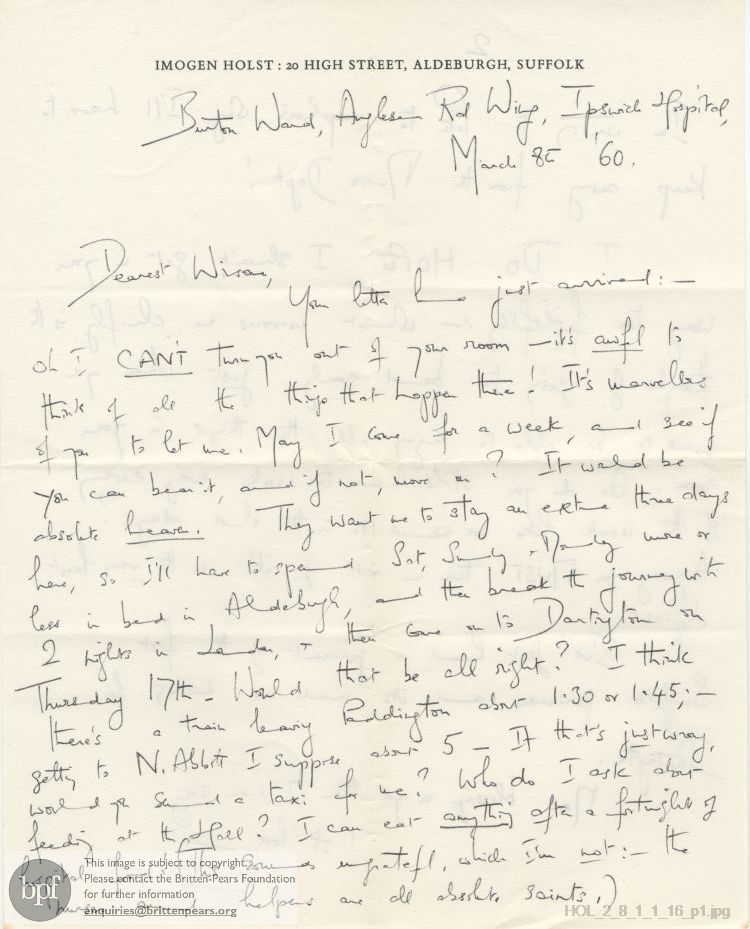 IMOGEN HOLST : 20 HIGH STREET, ALDEBURGH, SUFFOLK
Burton Ward, Anglesea Rd Wing, Ipswich Hospital,
March 8th '60.
Dearest Winsome,
Your letter has just arrived:—
oh I CAN'T turn you out of your room – it's awful to
think of all the things that happen there! It's marvellous
of you to let me. May I come for a week, and see if
you can bear it, and if not, move on? It would be
absolute heaven. They want me to stay an extra three days
here, so I'll have to spend Sat, Sunday + Monday more or
less in bed in Aldeburgh, and then break the journey with
2 nights in London, + then come on to Dartington on
Thursday 17th – Would that be all right? I think
there's a train leaving Paddington about 1.30 or 1.45;—
getting to N. Abbott I suppose about 5 – If that's just wrong,
would you send a taxi for me? Who do I ask about
feeding at the Hall? I can eat anything after a fortnight of
hospital food! (This sounds ungrateful, which I'm not:— the
nurses and helpers are all absolute saints.)
bpf
This image is subject to copyright.
Please contact the Britten-Pears Foundation
for further information
enquiries@brittenpears.org
HOL_2_8_1_1_16_p1.jpg